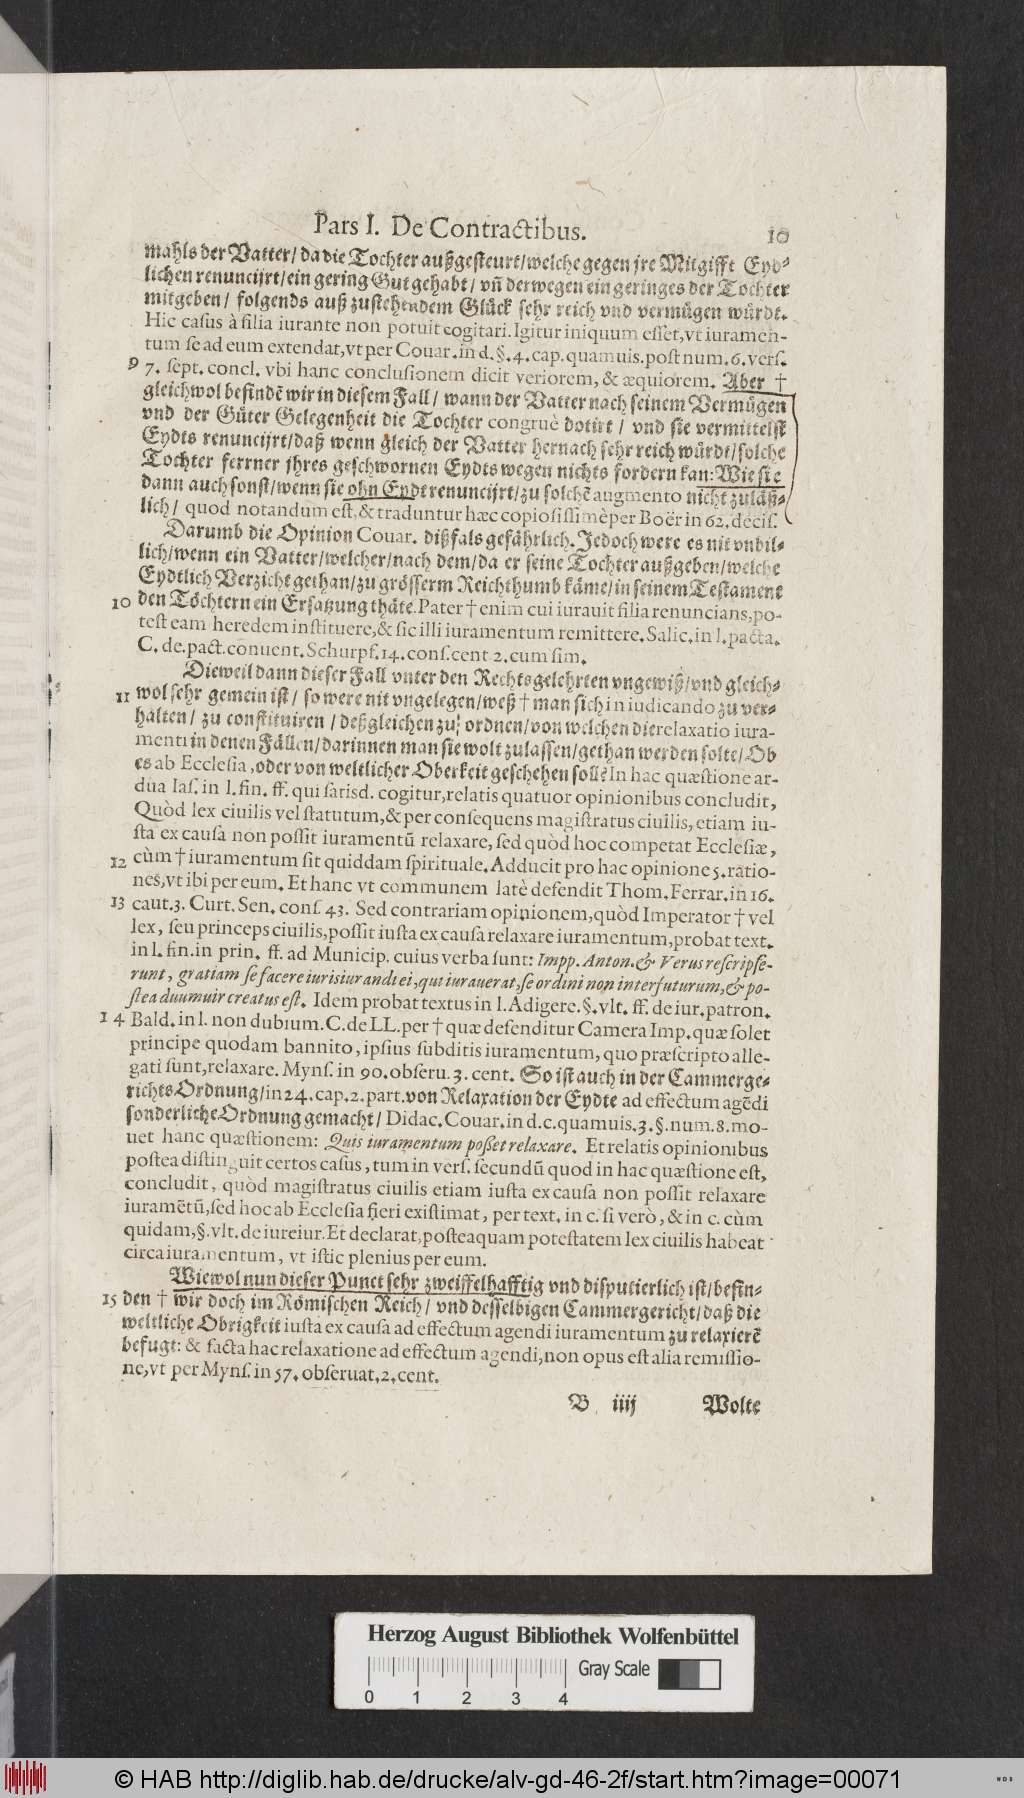 Pars I. De Contractibus. 10
mahls der Vatter/ da die Tochter außgesteurt/welche gegen jre Mitgifft Eyd-
lichen renuncijrt/ein gering Gut gehabt/ vñ derwegen ein geringes der Tochter
mitgeben/ folgends auß zustehendem Glück sehr reich vnd vermügen würdt.
Hic casus à filia iurante non potuit cogitari. Igitur iniquum esset, vt iuramen-
tum se ad eum extendat, vt per Couar. in d. §. 4. cap. quamuis. post num. 6. vers.
9 7. sept. concl. vbi hanc conclusionem dicit veriorem, & æquiorem. Aber †
gleichwol befindẽ wir in diesem Fall/ wann der Vatter nach seinem Vermügen
vnd der Güter Gelegenheit die Tochter congruè dotirt / vnd sie vermittelst
Eydts renuncijrt/daß wenn gleich der Vatter hernach sehr reich würdt/solche
Tochter ferrner jhres geschwornen Eydts wegen nichts fordern kan: Wie sie
dann auch sonst/wenn sie ohn Eydt renuncijrt/zu solchẽ augmento nicht zuläß-
lich/ quod notandum est, & traduntur hæc copiosissimè per Boër in 62. decis.
Darumb die Opinion Couar. dißfals gefährlich. Jedoch were es nit vnbil-
lich/wenn ein Vatter/welcher/nach dem/da er seine Tochter außgeben/welche
Eydtlich Verzicht gethan/zu grösserm Reichthumb käme/in seinem Testament
10 den Töchtern ein Ersatzung thäte. Pater † enim cui iurauit filia renuncians, po-
test eam heredem instituere, & sic illi iuramentum remittere. Salic. in l. pacta.
C. de. pact. conuent. Schurpf. 14. cons. cent 2. cum sim.
Dieweil dann dieser Fall vnter den Rechtsgelehrten vngewiß/vnd gleich-
11 wol sehr gemein ist/ so were nit vngelegen/weß † man sich in iudicando zu ver-
halten/ zu constituiren / deßgleichen zu ordnen/von welchen die relaxatio iura-
menti in denen Fällen/darinnen man sie wolt zulassen/gethan werden solte/Ob
es ab Ecclesia, oder von weltlicher Oberkeit geschehen soll? In hac quæstione ar-
dua Ias. in l. fin. ff. qui satisd. cogitur, relatis quatuor opinionibus concludit,
Quòd lex ciuilis vel statutum, & per consequens magistratus ciuilis, etiam iu-
sta ex causa non possit iuramentũ relaxare, sed quòd hoc competat Ecclesiæ,
12 cùm † iuramentum sit quiddam spirituale. Adducit pro hac opinione 5. ratio-
nes, vt ibi per eum. Et hanc vt communem latè defendit Thom. Ferrar. in 16.
13 caut. 3. Curt. Sen. cons. 43. Sed contrariam opinionem, quòd Imperator † vel
lex, seu princeps ciuilis, possit iusta ex causa relaxare iuramentum, probat text.
in l. fin. in prin. ff. ad Municip. cuius verba sunt: Impp. Anton. & Verus rescripse-
runt, gratiam se facere iurisiurandi ei, qui iurauerat, se ordini non interfuturum, & po-
stea duumuir creatus est. Idem probat textus in l. Adigere. §. vlt. ff. de iur. patron.
14 Bald. in l. non dubium. C. de LL. per † quæ defenditur Camera Imp. quæ solet
principe quodam bannito, ipsius subditis iuramentum, quo præscripto alle-
gati sunt, relaxare. Myns. in 90. obseru. 3. cent. So ist auch in der Cammerge-
richts Ordnung/in 24. cap. 2. part. von Relaxation der Eydte ad effectum agẽdi
sonderliche Ordnung gemacht/ Didac. Couar. in d. c. quamuis. 3. §. num. 8. mo-
uet hanc quæstionem: Quis iuramentum poßet relaxare. Et relatis opinionibus
postea distinguit certos casus, tum in vers. secundũ quod in hac quæstione est,
concludit, quòd magistratus ciuilis etiam iusta ex causa non possit relaxare
iuramẽtũ, sed hoc ab Ecclesia fieri existimat, per text. in c. si verò, & in c. cùm
quidam, §. vlt. de iureiur. Et declarat, posteaquam potestatem lex ciuilis habeat
circa iuramentum, vt istic plenius per eum.
Wiewol nun dieser Punct sehr zweiffelhafftig vnd disputierlich ist/befin-
15 den † wir doch im Römischen Reich/ vnd desselbigen Cammergericht/daß die
weltliche Obrigkeit iusta ex causa ad effectum agendi iuramentum zu relaxierẽ
befugt: & facta hac relaxatione ad effectum agendi, non opus est alia remissio-
ne, vt per Myns. in 57. obseruat. 2. cent.
B iiij Wolte
Herzog August Bibliothek Wolfenbüttel
Gray Scale
0 1 2 3 4
© HAB http://diglib.hab.de/drucke/alv-gd-46-2f/start.htm?image=00071